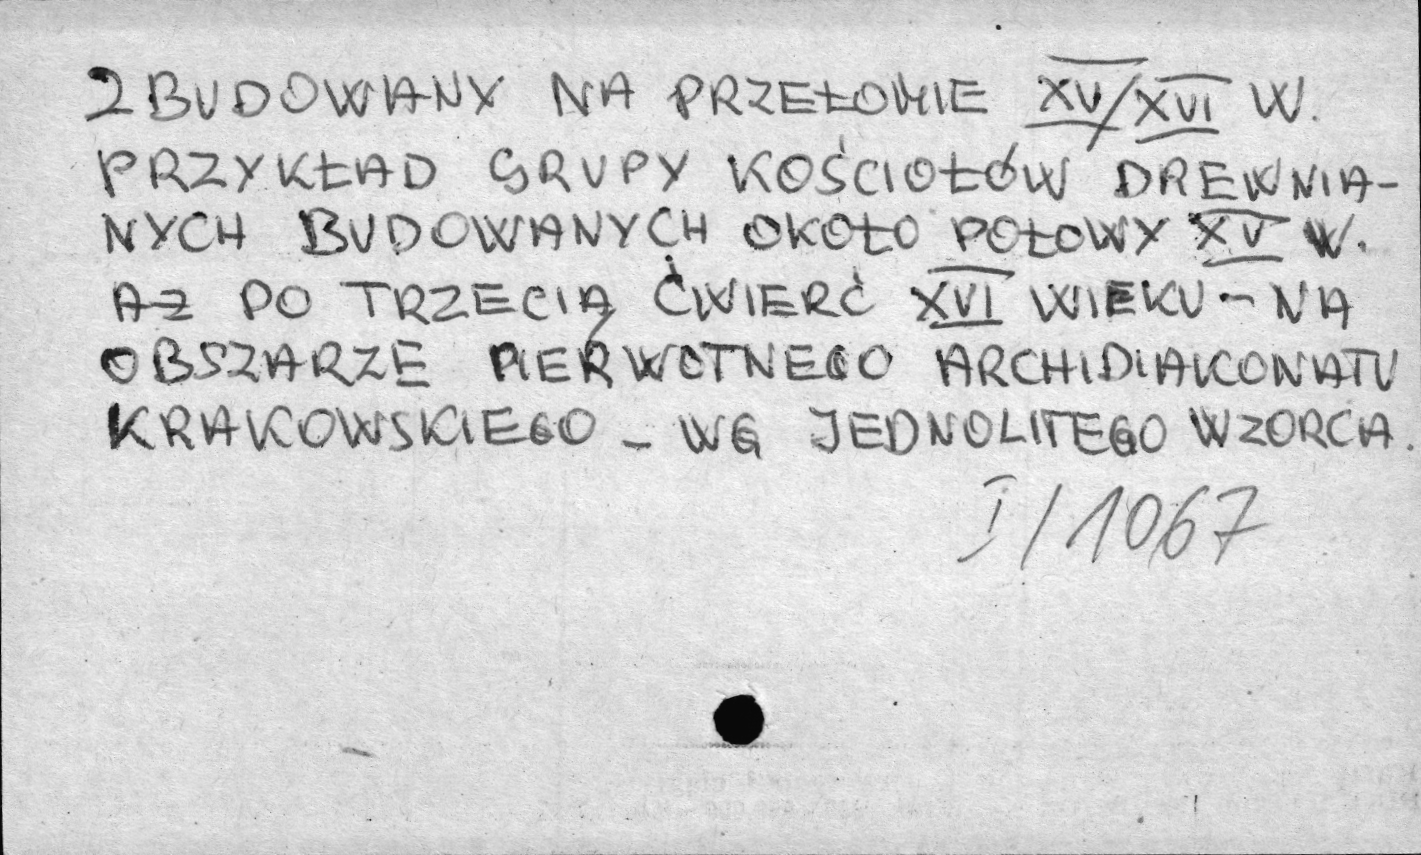 ZBUDOWANY NA PRZEŁOMIE XV/XVI W.
PRZYKŁAD GRUPY KOŚCIOŁÓW DREWNIA-
NYCH BUDOWANYCH OKOŁO POŁOWY XV W.
AŻ PO TRZECIĄ ĆWIERĆ XVI WIEKU - NA
OBSZARZE PIERWOTNEGO ARCHIDIAKONATU
KRAKOWSKIEGO - WG JEDNOLITEGO WZORCA.
I/1067